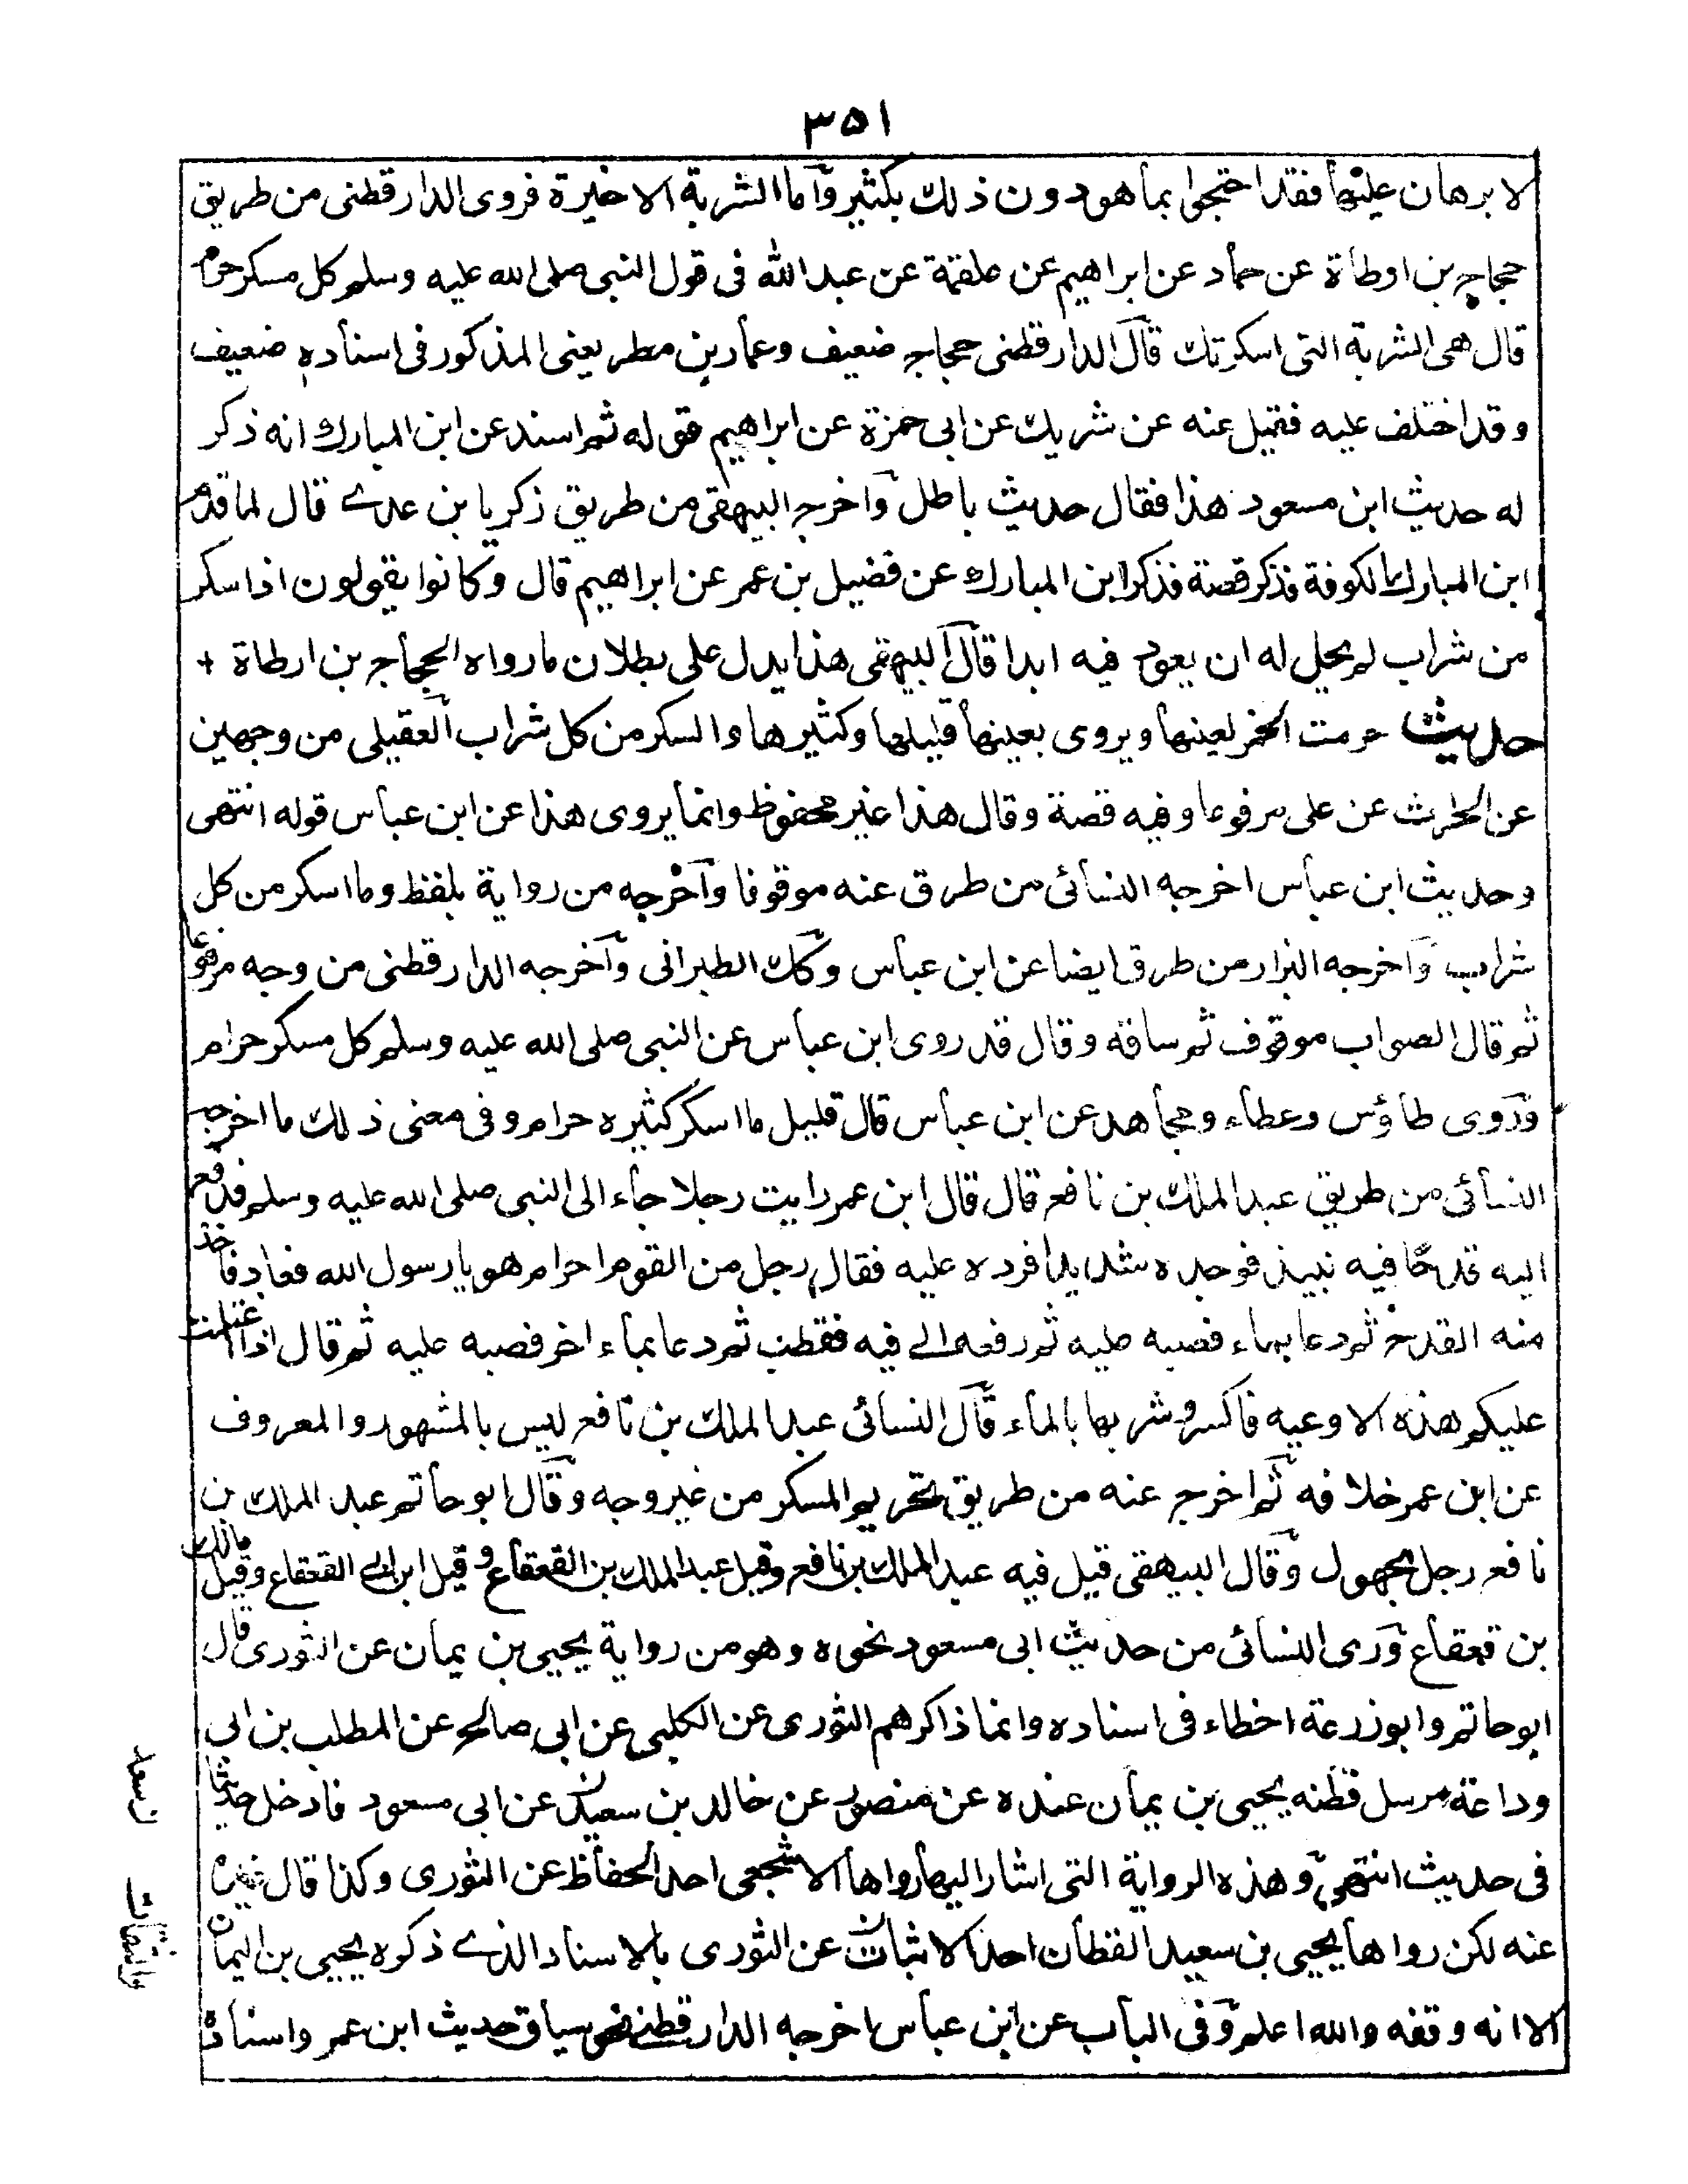 ٣٥١
لا برهان عليها فقد احتجوا بما هو دون ذلك بكثير وأما الشربة الاخيرة فروى الدارقطنى من طريق
حجاج بن ارطاة عن حماد عن ابراهيم عن علقمة عن عبد الله فى قول النبى صلى الله عليه وسلم كل مسكر حرام
قال هى الشربة التى اسكرتك قال الدارقطنى حجاج ضعيف وعمار بن مطر يعنى المذكور فى اسناده ضعيف
وقد اختلف عليه فقيل عنه عن شريك عن ابى حمزة عن ابراهيم قوله ثم اسند عن ابن المبارك انه ذكر
له حديث ابن مسعود هذا فقال حديث باطل وآخرجه البيهقى من طريق زكريا بن عدے قال لما قدم
ابن المبارك الكوفة فذكر قصة فذكر ابن المبارك عن فضيل بن عمر عن ابراهيم قال وكانوا يقولون اذا سكر
من شراب لم يحل له ان يعود فيه ابدا قال البيهقى هذا يدل على بطلان ما رواه الحجاج بن ارطاة +
حديث حرمت الخمر لعينها ويروى بعينها قليلها وكثيرها والسكر من كل شراب العقيلى من وجهين
عن الحارث عن على مرفوعا وفيه قصة وقال هذا غير محفوظ وانما يروى هذا عن ابن عباس قوله انتهى
وحديث ابن عباس اخرجه النسائى من طرق عنه موقوفا وآخرجه من رواية بلفظ وما اسكر من كل
شراب وآخرجه البزار من طرق ايضا عن ابن عباس وكك الطبرانى وآخرجه الدارقطنى من وجه مرفوعا
ثم قال الصواب موقوف ثم ساقه وقال قد روى ابن عباس عن النبى صلى الله عليه وسلم كل مسكر حرام
وروى طاؤس وعطاء ومجاهد عن ابن عباس قال قليل ما اسكر كثيره حرام وفى معنى ذلك ما اخرجه
النسائى من طريق عبد الملك بن نافع قال قال ابن عمر رايت رجلا جاء الى النبى صلى الله عليه وسلم فدفع
اليه قدحا فيه نبيذ فوجده شديدا فرده عليه فقال رجل من القوم احرام هو يا رسول الله فعاد فاخذ
منه القدح ثم دعا بماء فصبه عليه ثم رفعه الے فيه فقطب ثم دعا بماء اخر فصبه عليه ثم قال اذا اغتلمت
عليكم هذه الاوعيه فاكسروا شربها بالماء قال النسائى عبد الملك بن نافع ليس بالمشهور والمعروف
عن ابن عمر خلافه ثم اخرج عنه من طريق تحريم المسكر من غير وجه وقال ابو حاتم عبد الملك بن
نافع رجل مجهول وقال البيهقى قيل فيه عبد الملك بن نافع وقيل عبد الملك بن القعقاع وقيل ابن ابى القعقاع وقيل مالك
بن قعقاع وروى النسائى من حديث ابى مسعود نحوه وهو من رواية يحيى بن يمان عن الثورى قال
ابو حاتم وابو زرعة اخطاء فى اسناده وانما ذاكرهم الثورى عن الكلبى عن ابى صالح عن المطلب بن ابى
وداعة مرسل فظنه يحيى بن يمان عنده عن منصور عن خالد بن سعيد عن ابى مسعود فادخل حديثا
فى حديث انتهى وهذه الرواية التى اشار اليها رواها الاشجعى احد الحفاظ عن الثورى وكذا قال غيره
عنه لكن رواها يحيى بن سعيد القطان احد الاثبات عن الثورى بالاسناد الذے ذكره يحيى بن اليمان
الا انه وقفه والله اعلم وفى الباب عن ابن عباس اخرجه الدارقطنى نحو سياق حديث ابن عمر واسناده
ن سعد